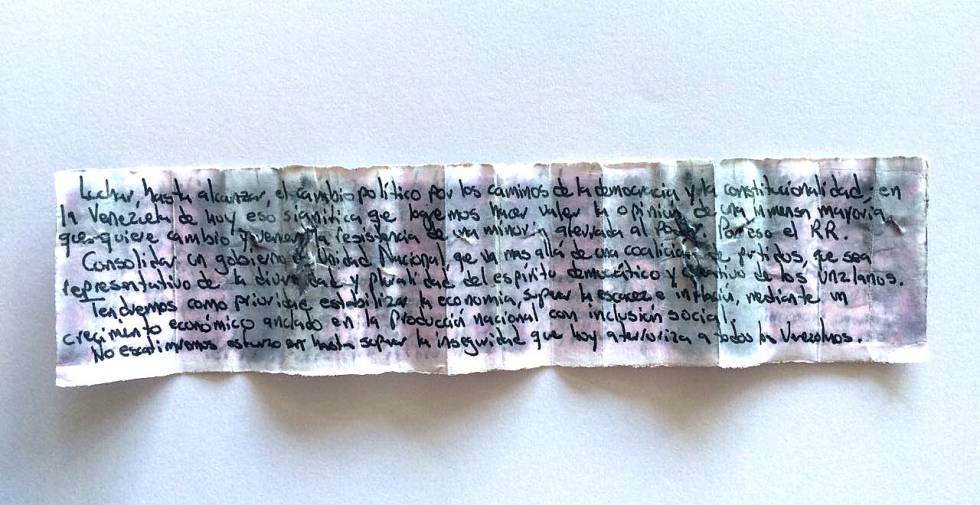 Luchar, hasta alcanzar, el cambio político por los caminos de la democracia y la constitucionalidad; en
la Venezuela de hoy eso significa qe logremos hacer valer la opinión de una inmensa mayoría,
que quiere cambio y vencer la resistencia de una minoría aferrada al Poder. Por eso el RR.
Consolidar un gobierno de Unidad Nacional, qe va más allá de una coalición de partidos, que sea
representativo de la diversidad y pluralidad del espíritu democrático y de los Vnzlanos.
Tendremos como prioridad estabilizar la economía, superar la escasez e inflación, mediante un
crecimiento económico anclado en la Producción nacional con inclusión social.
No escatimaremos esfuerzo en hasta superar la inseguridad que hoy aterroriza a todos los Venezolanos.